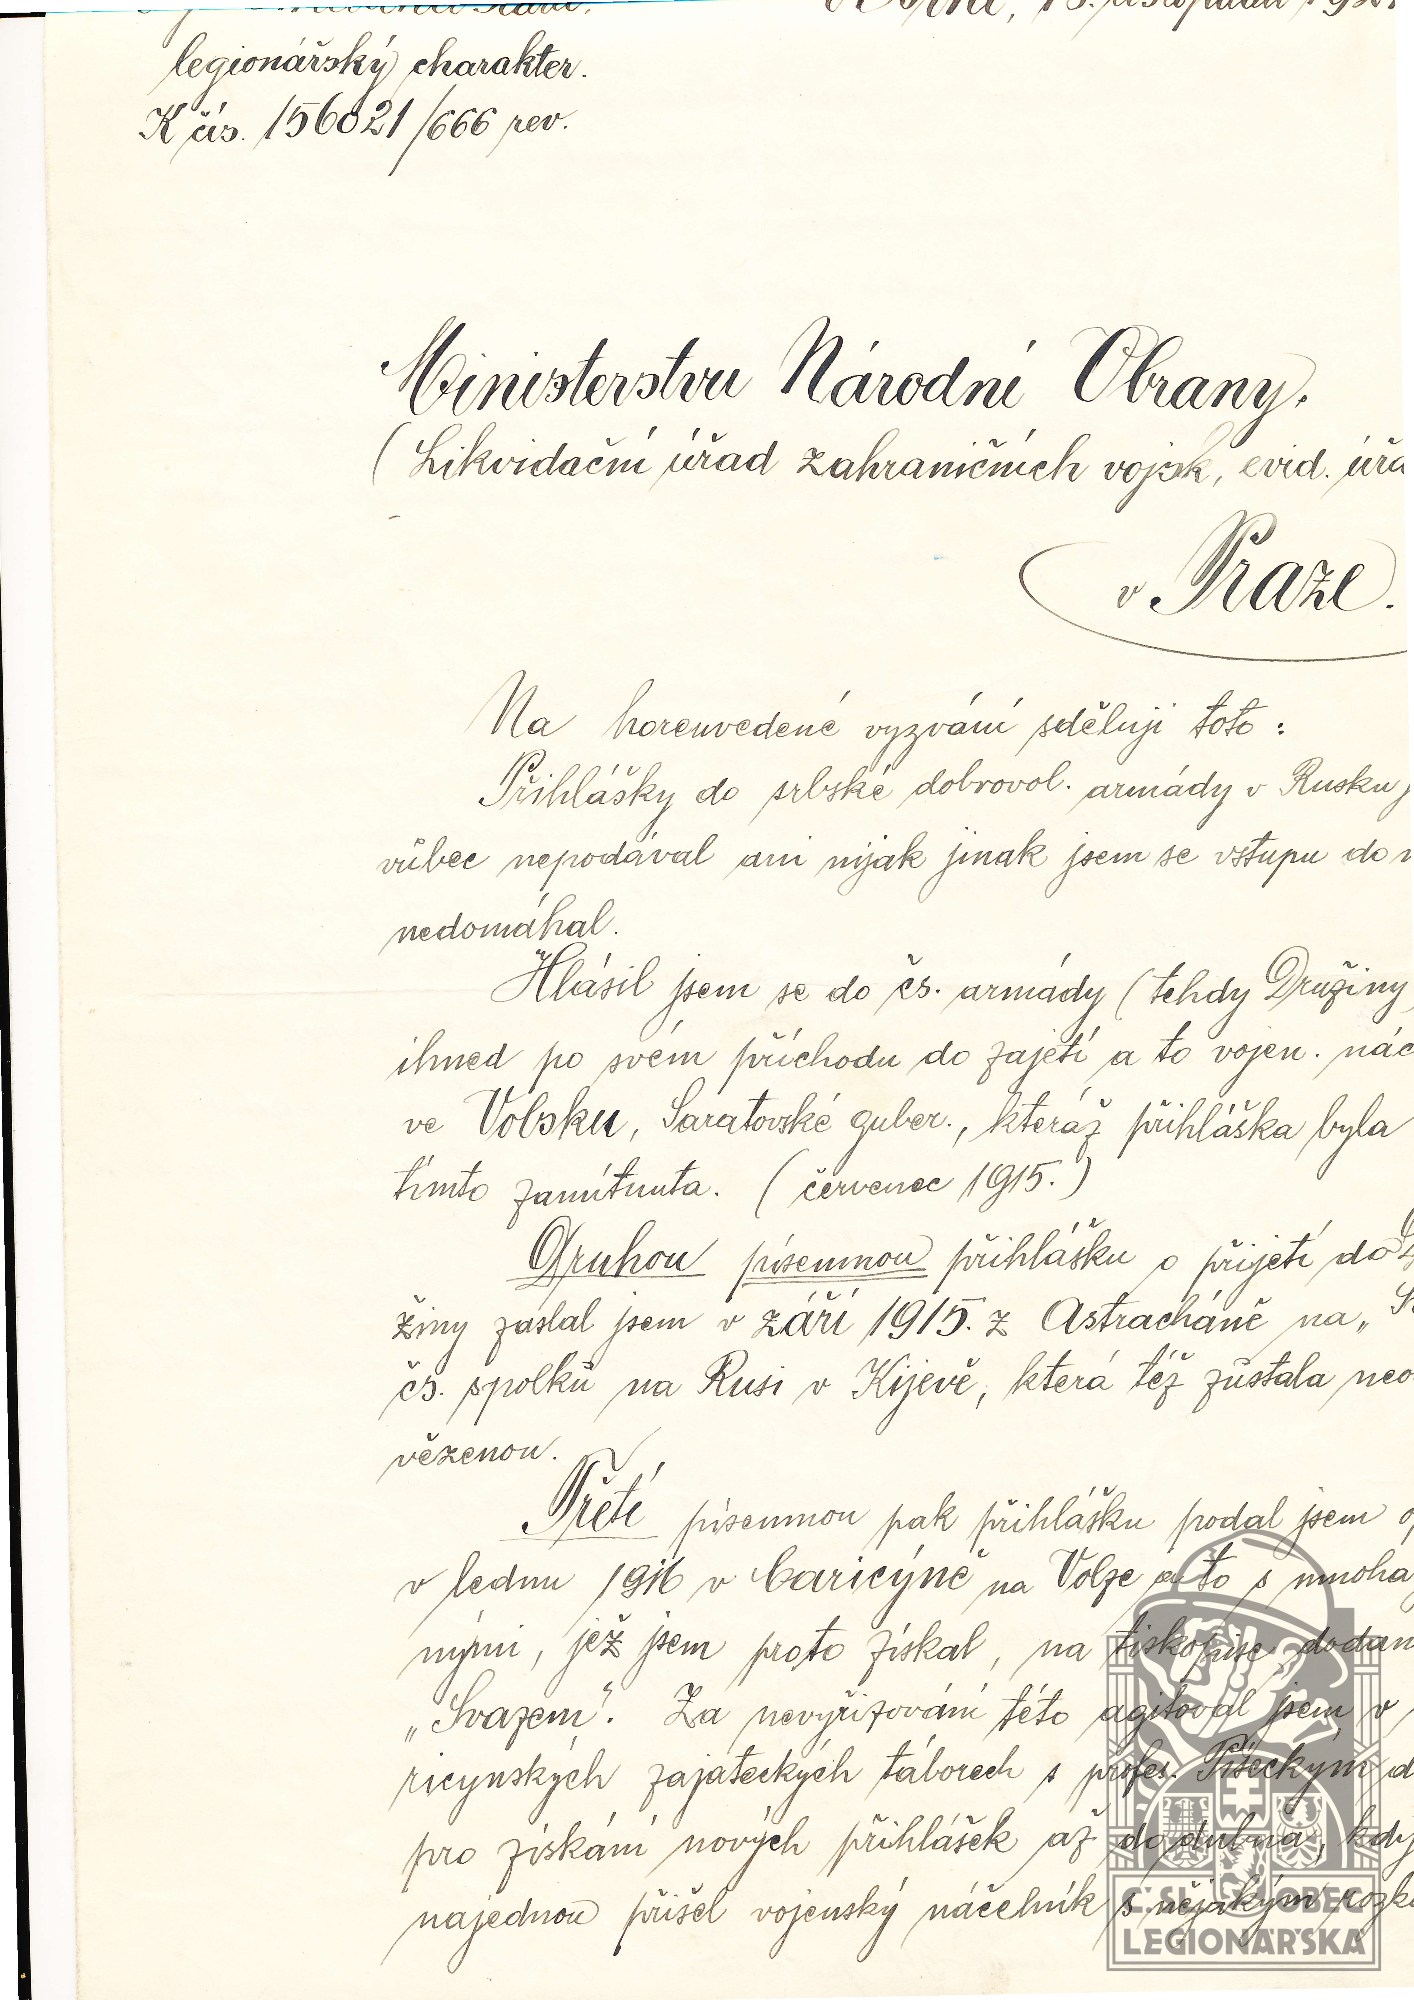 legionářský charakter.
K čís. 156021/666 rev.
Ministerstvu Národní Obrany.
(Likvidační úřad zahraničních vojsk, evid. úřa
v Praze.
Na horeuvedené vyzvání sděluji toto:
Přihlášky do srbské dobrovol. armády v Rusku
vůbec nepodával ani nijak jinak jsem se vstupu do n
nedomáhal.
Hlásil jsem se do čs. armády (tehdy Družiny
ihned po svém příchodu do zajetí a to vojen. náč
ve Volsku, Saratovské guber., kteráž přihláška byla
tímto zamítnuta. (červenec 1915.)
Druhou písemnou přihlášku o přijetí do
žiny zaslal jsem v září 1915. z Astracháně na „
čs. spolků na Rusi v Kijevě, která též zůstala neo
vězenou.
Třetí písemnou pak přihlášku podal jsem
v lednu 1916 v Caricýně na Volze a to s mnoha
nými, jež jsem proto získal, na tiskopise dodan
„Svazem". Za nevyřizování této agitoval jsem v
ricynských zajateckých táborech s profes. Píseckým d
pro získání nových přihlášek až do dubna, kdy
najednou přišel vojenský náčelník s nějakým rozka
ČSL. OBEC
LEGIONÁŘSKÁ